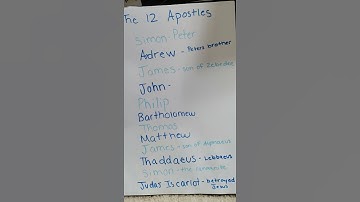 The 12 Apostles
Simon-Peter
Adrew - Peters brother
James - son of Zebedee
John -
Philip
Bartholomew
Thomas
Matthew
James - son of Alphaeus
Thaddaeus - Lebbaeus
Simon - the Cannanite
Judas Iscariot - betrayed
Jesus